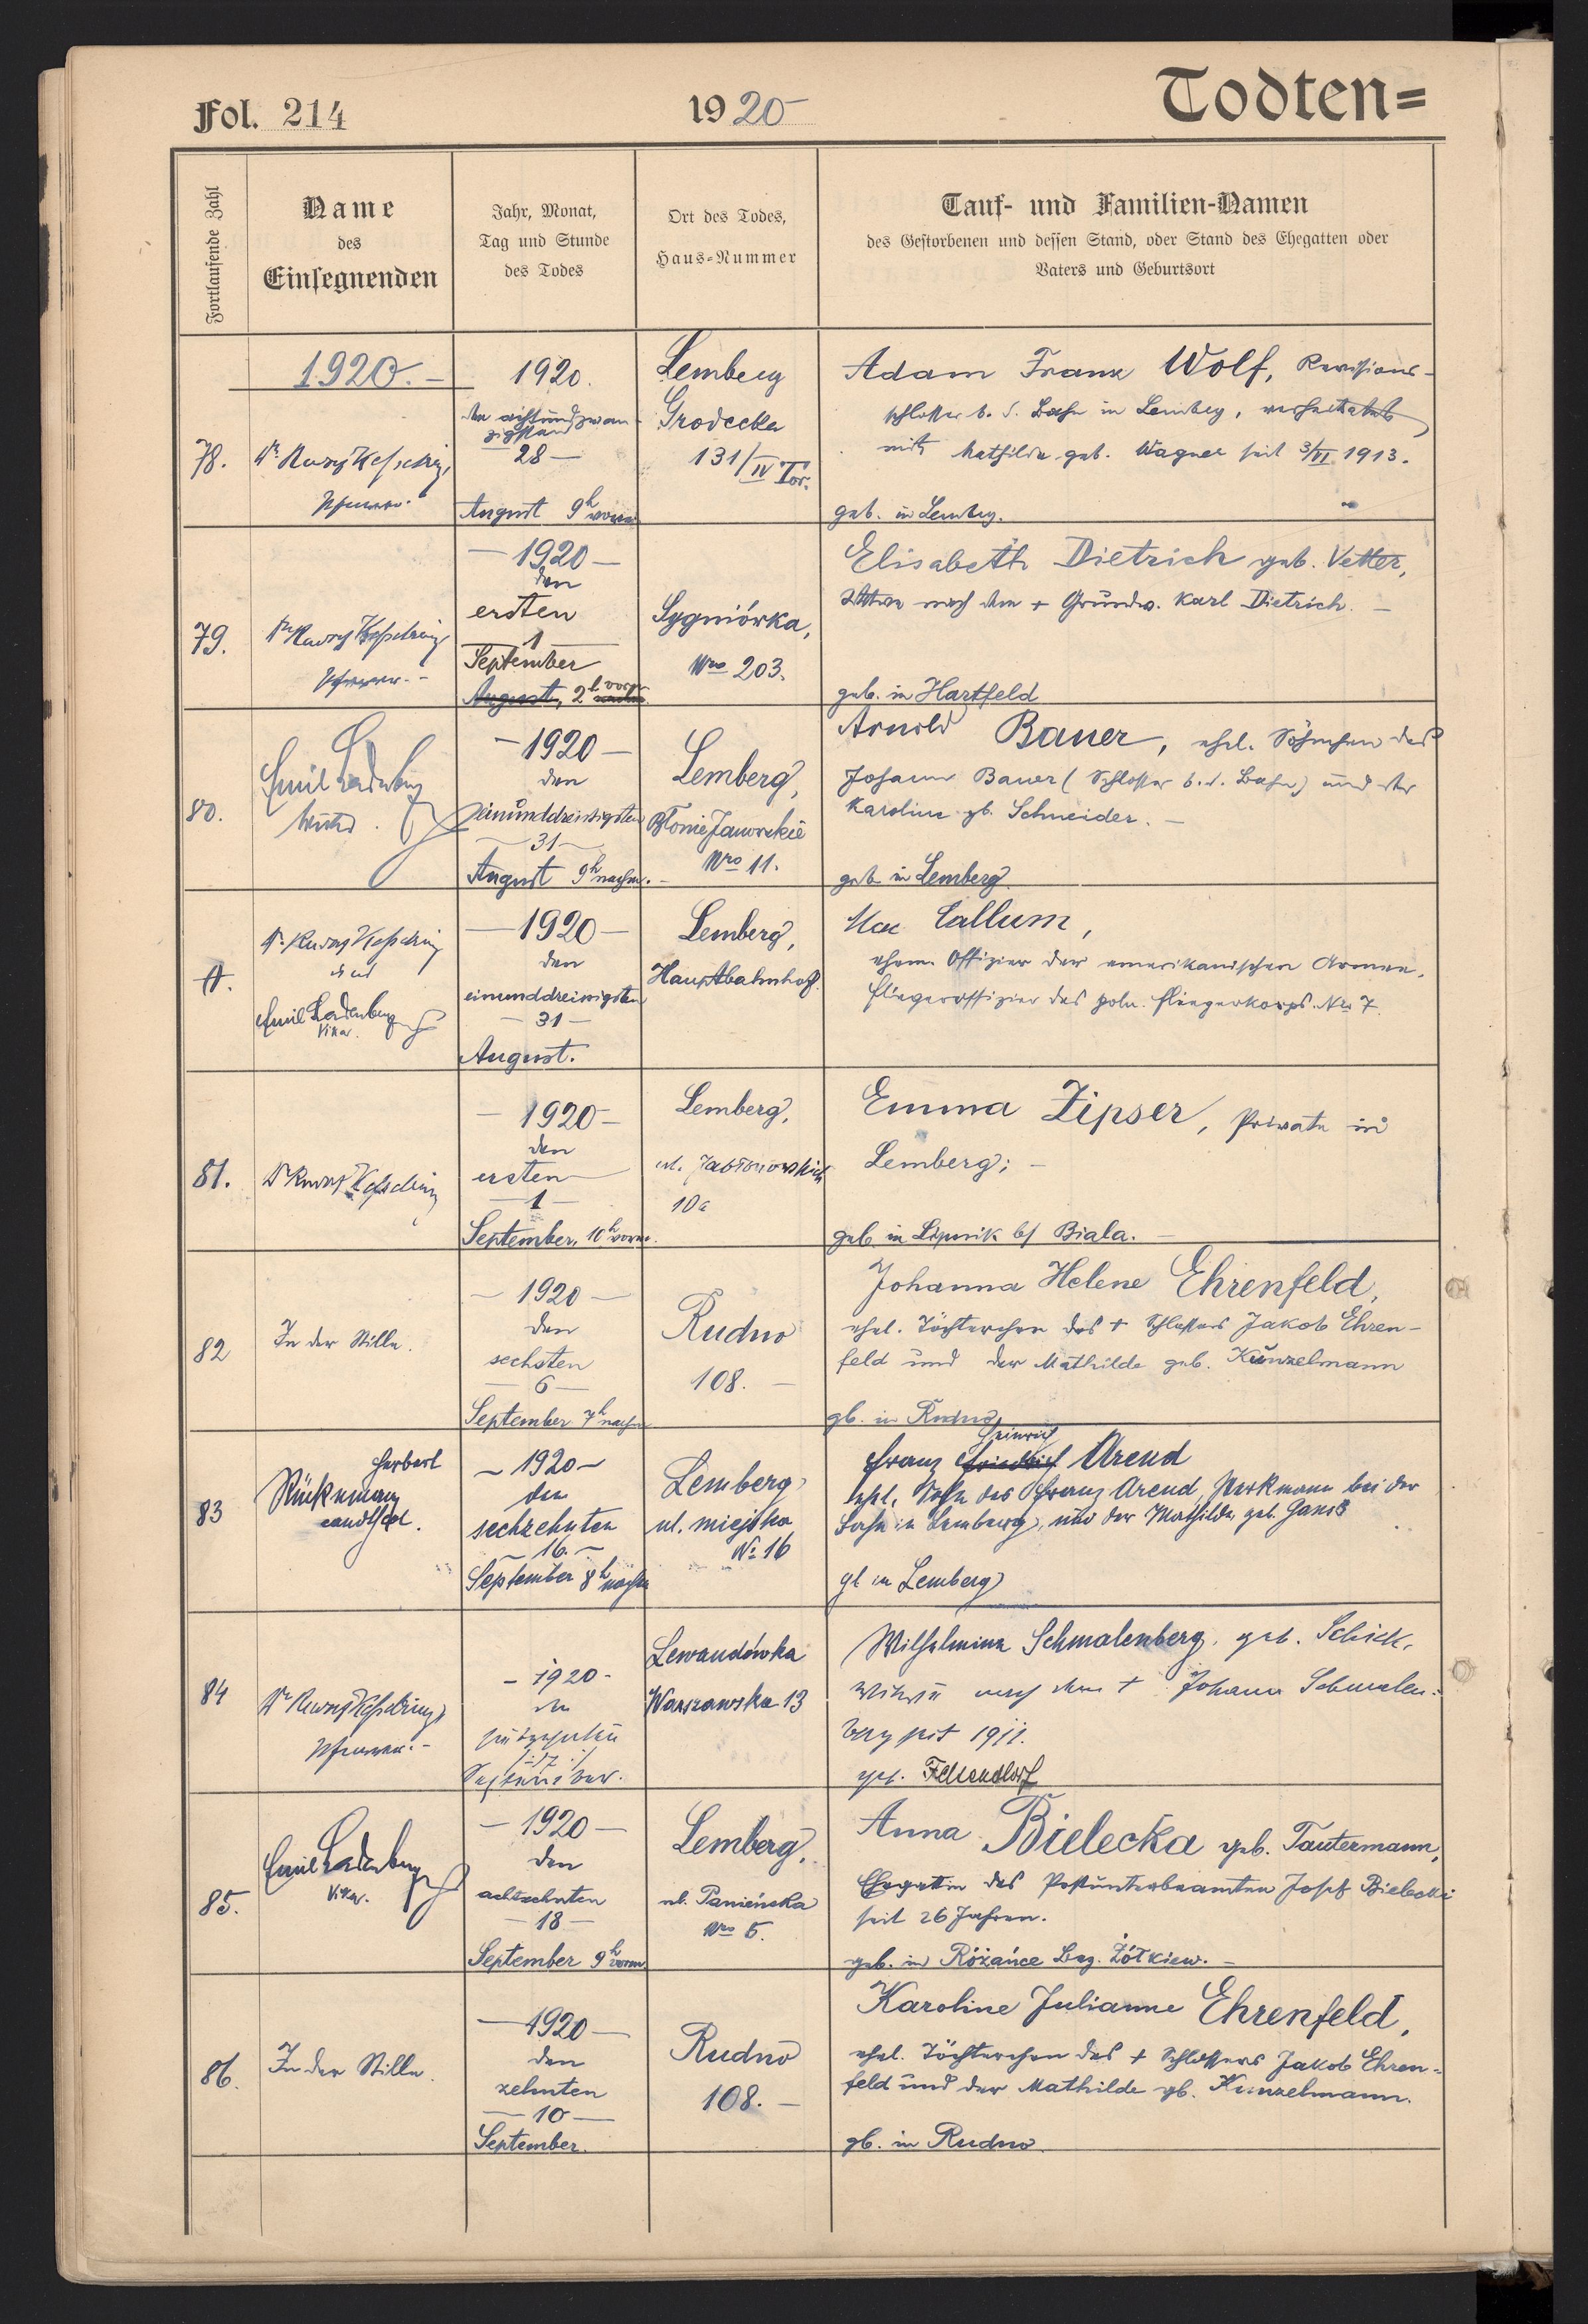 Fol. 214
1920
Todten=
Fortlaufende Zahl
Name
des
Einsegnenden
Jahr, Monat,
Tag und Stunde
des Todes
Ort des Todes,
Haus-Nummer
Tauf- und Familien-Namen
des Gestorbenen und dessen Stand, oder Stand des Ehegatten oder
Vaters und Geburtsort
1920.-
78.
Dr. Kesselring,
Pfarrer.
1920.
den achtundzwan-
zigsten
28-
August 9h vorm.
Lemberg
Grodecka
131/IV Tor.
Adam Franz Wolf, Revisions-
schlosser b. d. Bahn in Lemberg, verheiratet
mit Mathilde geb. Wagner seit 3/VI 1913.
geb. in Lemberg.
79.
Dr. Kesselring
Pfarrer.-
-1920-
den
ersten
1
September
August, 2h vorm.
Sygniówka,
Nro 203.
Elisabeth Dietrich geb. Vetter,
Witwe nach dem + Grundw. Karl Dietrich.-
geb. in Hartfeld
80.
Emil Ladenberger
-1920-
den
einunddreissigsten
-31-
August 9h nachm.-
Lemberg,
Błonie Janowskie
Nro 11.
Arnold Bauer, ehel. Söhnchen des
Johann Bauer (Schlosser b. d. Bahn) und der
Karoline gb. Schneider.-
geb. in Lemberg
A.
Dr. Kesselring
und
Emil Ladenberger
Vikar.
-1920-
den
einunddreissigsten
-31-
August.
Lemberg,
Hauptbahnhof.
Mac Callum,
ehem. Offizier der amerikanischen Armee,
Fliegeroffizier des poln. Fliegerkorps. Nro 7.
81.
Dr. Kesselring
-1920-
den
ersten
-1-
September, 10h vorm.
Lemberg,
ul. Jabłonowskich
10a
Emma Zipser, Private in
Lemberg;-
geb. in Lipnik b/ Biala.-
82
In der Stille.
-1920-
den
sechsten
-6-
September 7h nachm
Rudno
108.-
Johanna Helene Ehrenfeld,
ehel. Töchterchen des + Schlossers Jakob Ehren-
feld und der Mathilde geb. Künzelmann
gb. in Rudno
83
Herbert
Rückemann
cand. theol.
-1920-
den
sechzehnten
-16.-
September 8h nachm
Lemberg
ul. miejska
No 16
Heinrich
Franz Friedrich Arend
ehel. Sohn des Franz Arend, Werkmann bei der
Bahn in Lemberg, und der Mathilde, geb.
gb in Lemberg
84
Dr. Kesselring
Pfarrer.-
-1920-
den
siebzehnten
/:17:/
September.
Lewandówka
Warszawska 13
Wilhelmine Schmalenberg, geb. Schick,
Witwe nach dem + Johann Schmalen-
berg seit 1911.
geb. Falkendorf
85.
Emil Ladenberger
Vikar.
-1920-
den
achtzehnten
-18-
September 9h vorm
Lemberg,
ul. Panieńska
Nro 5.
Anna Bielecka geb. Tautermann,
Ehegattin des Postunterbeamten Josef Bielecki
seit 26 Jahren.
geb. in Różańce Bez. Żółkiew.-
86.
In der Stille.
-1920-
den
zehnten
-10-
September.
Rudno
108.-
Karoline Julianne Ehrenfeld,
ehel. Töchterchen des + Schlossers Jakob Ehren-
feld und der Mathilde gb. Kunzelmann.
gb. in Rudno.